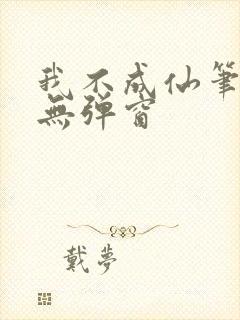 我不成仙筆
無彈窗
戴夢